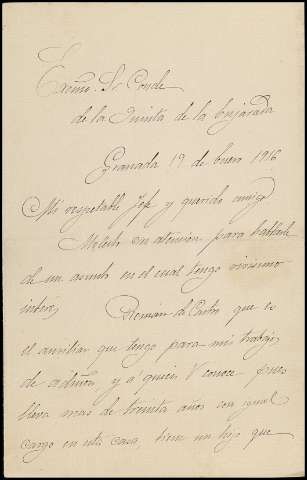 Exmo. Sr Conde
de la Quinta de la Enjarada
Granada 19 de Enero 1916
Mi respetable Jefe y querido amigo
Molesto su atencion para hablarle
de un asunto en el cual tengo vivisimo
interes, Damián de Castro que es
el auxiliar que tengo para mis trabajos
de aduana, y a quien V conoce pues
lleva mas de treinta años con igual
cargo en esta casa, tiene un hijo que